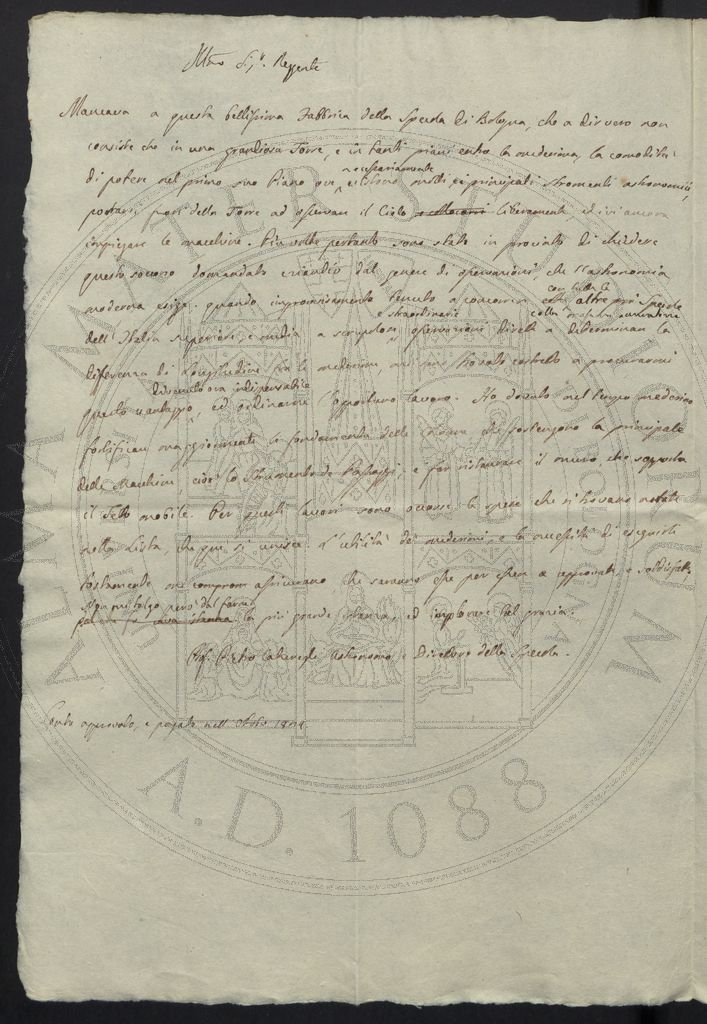 Illmo Sig.r Reggente
Mancava a questa bellissima Fabbrica della Specola di Bologna, che a dir vero non
consiste che in una grandiosa Torre, e in tanti piani entro la medesima, la comodità
di potere nel primo suo Piano ove necessariamente esistono molti e i principali Stromenti astronomici,
portarsi fuori della Torre ad osservare il Cielo liberamente, ed ivi ancora
impiegare le macchine. Più volte pertanto sono stato in procinto di chiedere
questo soccorso domandato eziandio dal genere di osservazioni, che l'astronomia
moderna esige: quando improvvisamente tenuto a concorrere con tutte le altre Specole
dell'Italia superiore, e media a scrupolose e straordinarie osservazioni dirette a determinare la
differenza di Longitudine fra le medesime, mi son trovato costretto a procurarmi
questo vantaggio, divenuto ora indispensabile ed ordinarne l'opportuno lavoro. Ho dovuto nel tempo medesimo
fortificare maggiormente le fondamenta delle Colonne che sostengono la principale
delle Macchine cioè lo Strumento de' Passaggi e far ristaurare il muro che sopporta
il Tetto mobile. Per questi lavori sono occorse le spese che si trovano notate
nella Lista, che qui si unisce. L'utilità dei medesimi, e la necessità di eseguirli
tostamente mi assicurano, che saranno esse per essere approvate, e soddisfatte.
Non mi tolgo però dal farne la più grande istanza, ed implorarne tal grazia.
Pietro Caturegli Astronomo, e Direttore della Specola.
Conto approvato, e pagato nell'
ALMA MATER STUDIORUM
A.D. 1088